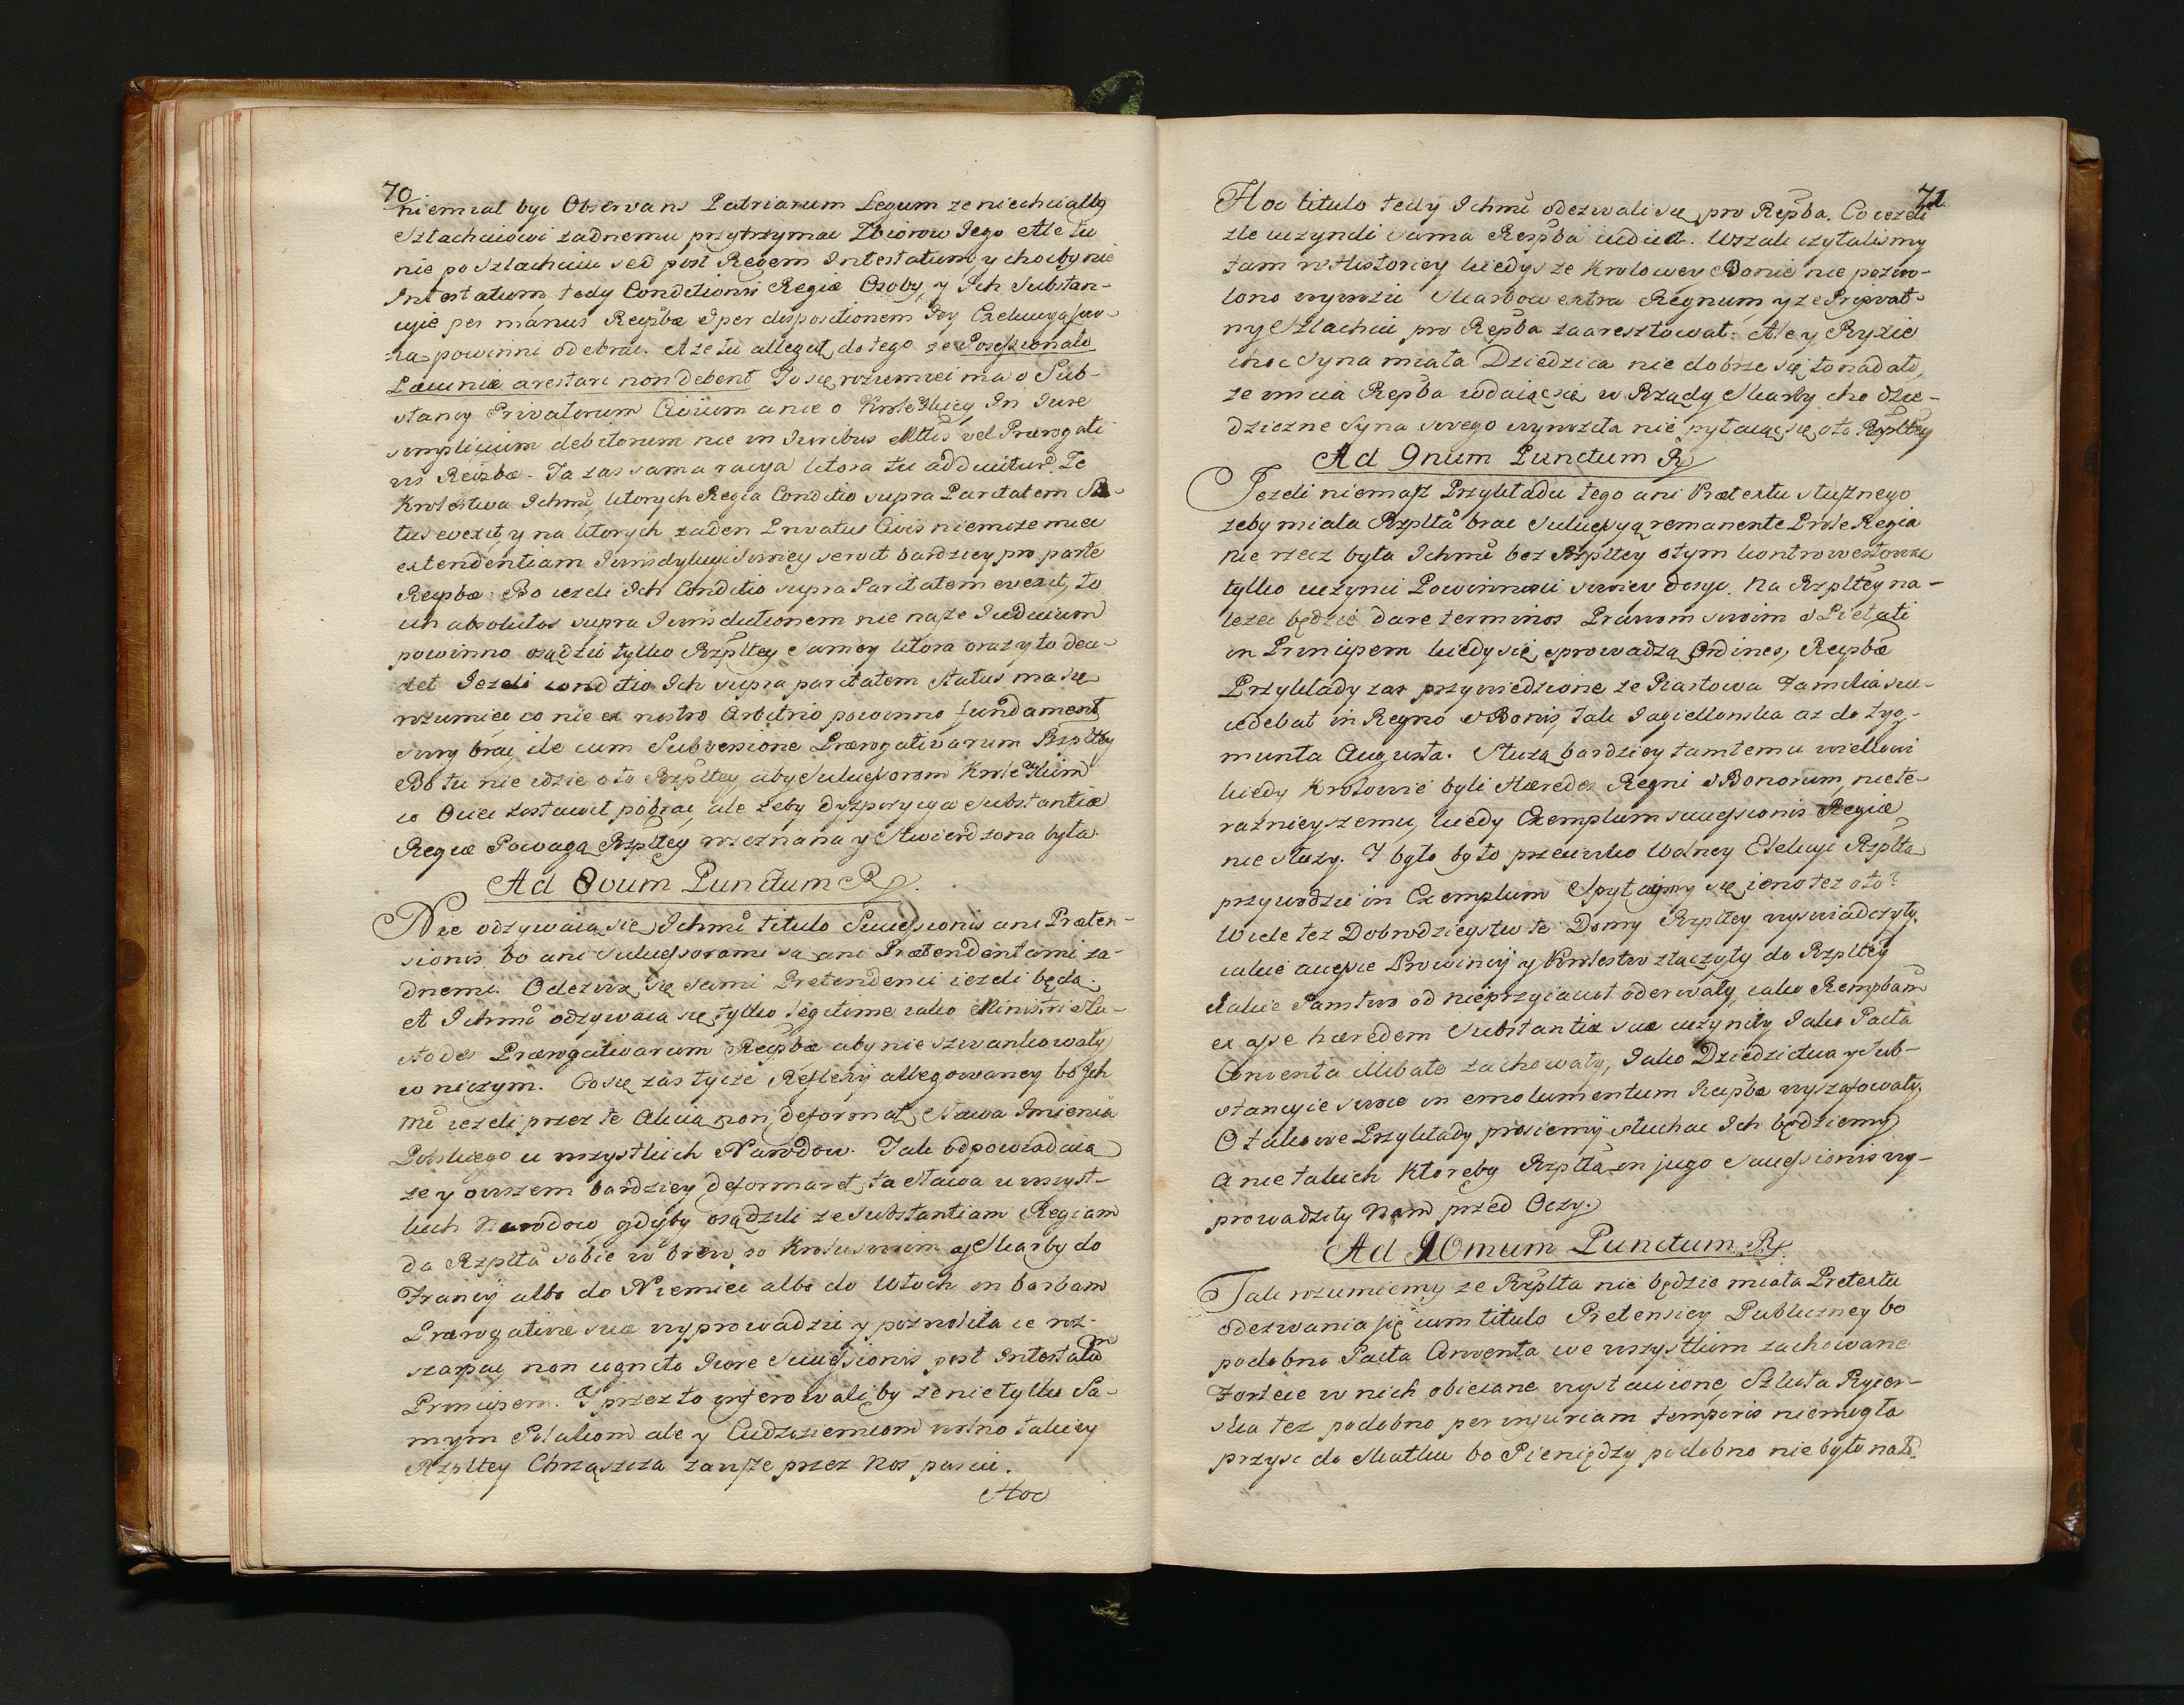 70
niemiał być Observans Patriarum Legum że niechciałby
Szlachcicowi żadnemu przytrzymać Zbiorow Jego Ale tu
nie po Szlachcicu sed post Regem Intestatum, y choćby nie
Intestatum tedy Conditionis Regiæ Osoby, y Ich Substan-
cyie per manus Reipbæ & per dispositionem
powinni odebrać. A że tu allegat do tego ze Possessionato
Pecuniæ arestari non debent To się rozumieć ma o Sub-
stancy Privatorum Civium a nie o In Iure
simplicium debitorum nie in Iuribus Mttis vel Prærogati
vis Reipbæ. Ta zas sama racya ktora tu adducitur. Ze
Krolestwa Ichmć, ktorych Regia Conditio supra Paritatem Sta-
tus evexit, y na ktorych zaden Privatus Civis niemoze miec
extendentiam Iurisdykcyi swoiey servit bardziey pro parte
Reipbæ. Bo iezeli Ich Conditio supra Paritatem evexit, to
ich absolutos supra Iurisdictionem nie nasze Iudicium
powinno osądzić tylko Rzpltey samey ktora oraz y to deci-
det Jezeli conditio Ich supra paritatem Status ma się
rozumiec co nie ex nostro Arbitrio powinno fundament
swoy brać ile cum Subversione Prærogativarum Rzpltey
Bo tu nie idzie o to Rzpltey aby Sukcessorom
co Ociec zostawił pobrać, ale zeby dyspozycya Substantiæ
Regiæ Powagą Rzpltey rozeznana y stwierdzona była.
Ad 8vum Punctum R.
Nie odzywaią się Ichmć titulo Successionis ani Præten-
sionis bo ani Sukcessorami są ani Prætendentami ża-
dnemi. Odezwą się sami Pretendenci iezeli będą.
A Ichmć odzywaią się tylko legitime iako Ministri &
stodes Prærogativarum Reipbæ aby nie szwankowały
w niczym. Co się zas tycze Reflexij allegowaney bo Ich
mć iezeli przez te Alicia non deformat Sława Imienia
Polskiego u wszystkich Narodow. Tak odpowiadaią
ze y owszem bardziey deformaret ta sława u wszyst-
kich Narodow, gdyby osądzili ze Substantiam Regiam
da Rzplta sobie w brew po Krolu swoim y Skarby do
Francij albo do Niemiec albo do Włoch in barbam
Prærogativæ suæ wyprowadzić y pozwoliła ie roz-
szarpać non cognito Iure Successionis post Intestatum
Principem. Y przez to inferowaliby ze nie tylko Sa-
mym Polakom ale y Cudzoziemcom wolno takiey
Rzpltey Chrząszcza zawsze przez Nos puscić.
Hoc
71
Hoc titulo tedy Ichmć odezwali się pro Repba. Co iezeli
zle uczynili sama Respba iudicet. Wszak czytalismy
tam w Historiey kiedys ze Krolowey Bonie nie pozwo-
lono wywozić Skarbow extra Regnum, y ze Privat-
ny Szlachcic pro Repba zaaresztował. Ale y Ryxie
choc Syna miała Dziedzica nie dobrze się to nadało,
ze wdaiąc się w Rządy Skarby cho dzie-
dziczne Syna swego wywozła nie pytaiąc się o to Rzpltey
Ad 9num Punctum R
Jezeli niemasz Przykładu tego ani Prætextu słusznego
zeby miała Rzplta brac Sukcessyą remanente Prole Regia
nie rzecz była Ichmć bez Rzpltey o tym kontrowertowac
tylko uczynić Powinnosci swoiey dosyc. Na Rzpltey na-
lezec będzie dare terminos Prawom swoim & Pietati
in Principem kiedy się sprowadzą Ordines Reipbæ
Przykłady zas przywiedzione ze Piastowa Familia suc-
cedebat in Regno & Bonis, tak Jagiellonska az do Zyg-
munta Augusta. Służą bardziey tamtemu wiekowi
kiedy Krolowie byli Hæredes Regni & Bonorum, nie te-
raznieyszemu, kiedy Exemplum successionis Regiæ
nie służy. I było by to przeciwko Wolney Elekcyi Rzplta
przywodzić in Exemplum Spytaymy się ieno tez o to?
Wiele tez Dobrodzieystw te Domy Rzpltey wyswiadczyły.
iakie Prowincij y Krolestw złączyły do Rzpltey
Iakie Panstwo od nieprzyiacioł oderwały, iako Rempbam
ex asse hæredem Substantiæ suæ uczyniły, Iako Pacta
Conventa illibate zachowały, Iako Dziedzictwa y Sub-
stancyie swoie in emolumentum Reipbæ wyszafowały.
O takowe Przykłady prosiemy słuchac Ich będziemy
a nie takich ktoreby Rzpltą in jugo Successionis wy-
prowadziły Nam przed Oczy.
Ad 10mum Punctum R.
Tak rozumiemy ze Rzplta nie będzie miała Pretextu
odezwania się cum titulo Pretensiey Publiczney bo
podobno Pacta Conventa we wszystkim zachowane
Fortece w nich obiecane wystawione, Szkoła Rycer-
ska tez podobno per iniuriam temporis niemogła
przysc do Skutku bo Pieniędzy podobno nie było na to.